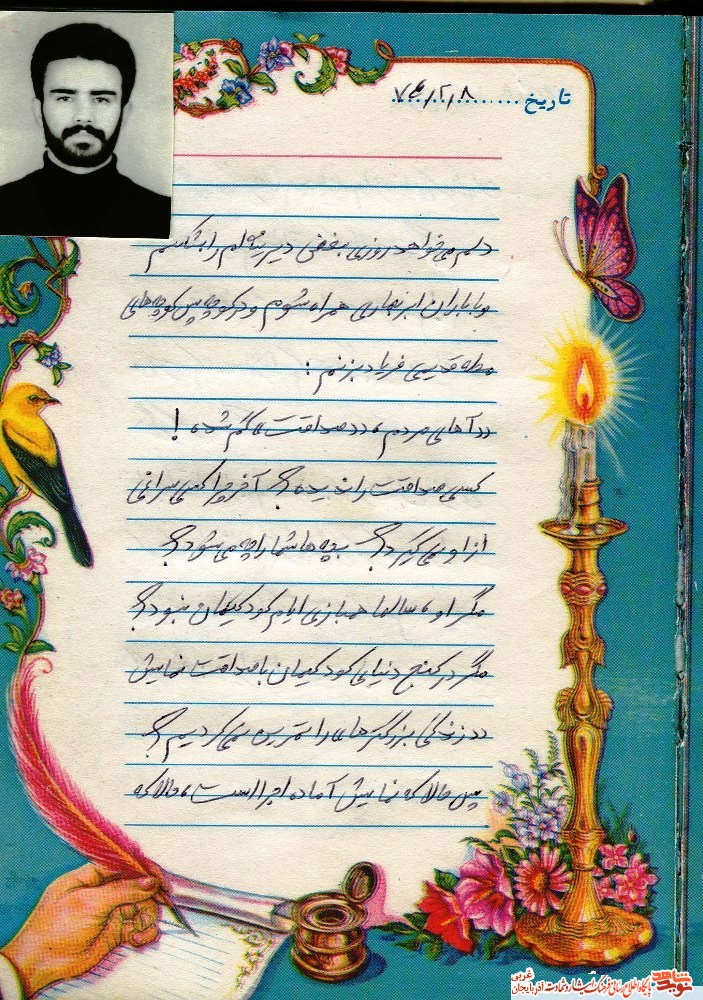 تاریخ ۷۴/۲/۸
دلم می‌خواهد روزی بغض دیرینه‌ام را بشکنم
و با باران ابر بهاری همراه شوم و در کوچه پس کوچه‌های
محله قدیمی فریاد بزنم :
«آهای مردم، «صداقت» گم شده !
کسی صداقت را ندیده؟ آخر چرا کسی سراغی
از او نمی‌گیرد؟ بچه‌ها شما را چه می‌شود؟
مگر او، سالها همبازی ایام کودکیمان نبود؟
مگر در کنج دنیای کودکیمان با صداقت نمایش
«زندگی بزرگترها» را تمرین نمی‌کردیم؟
پس حالا که نمایش آماده اجراست، حالا که
نوید شاهد
پایگاه اطلاع رسانی فرهنگ ایثار و شهادت آذربایجان غربی